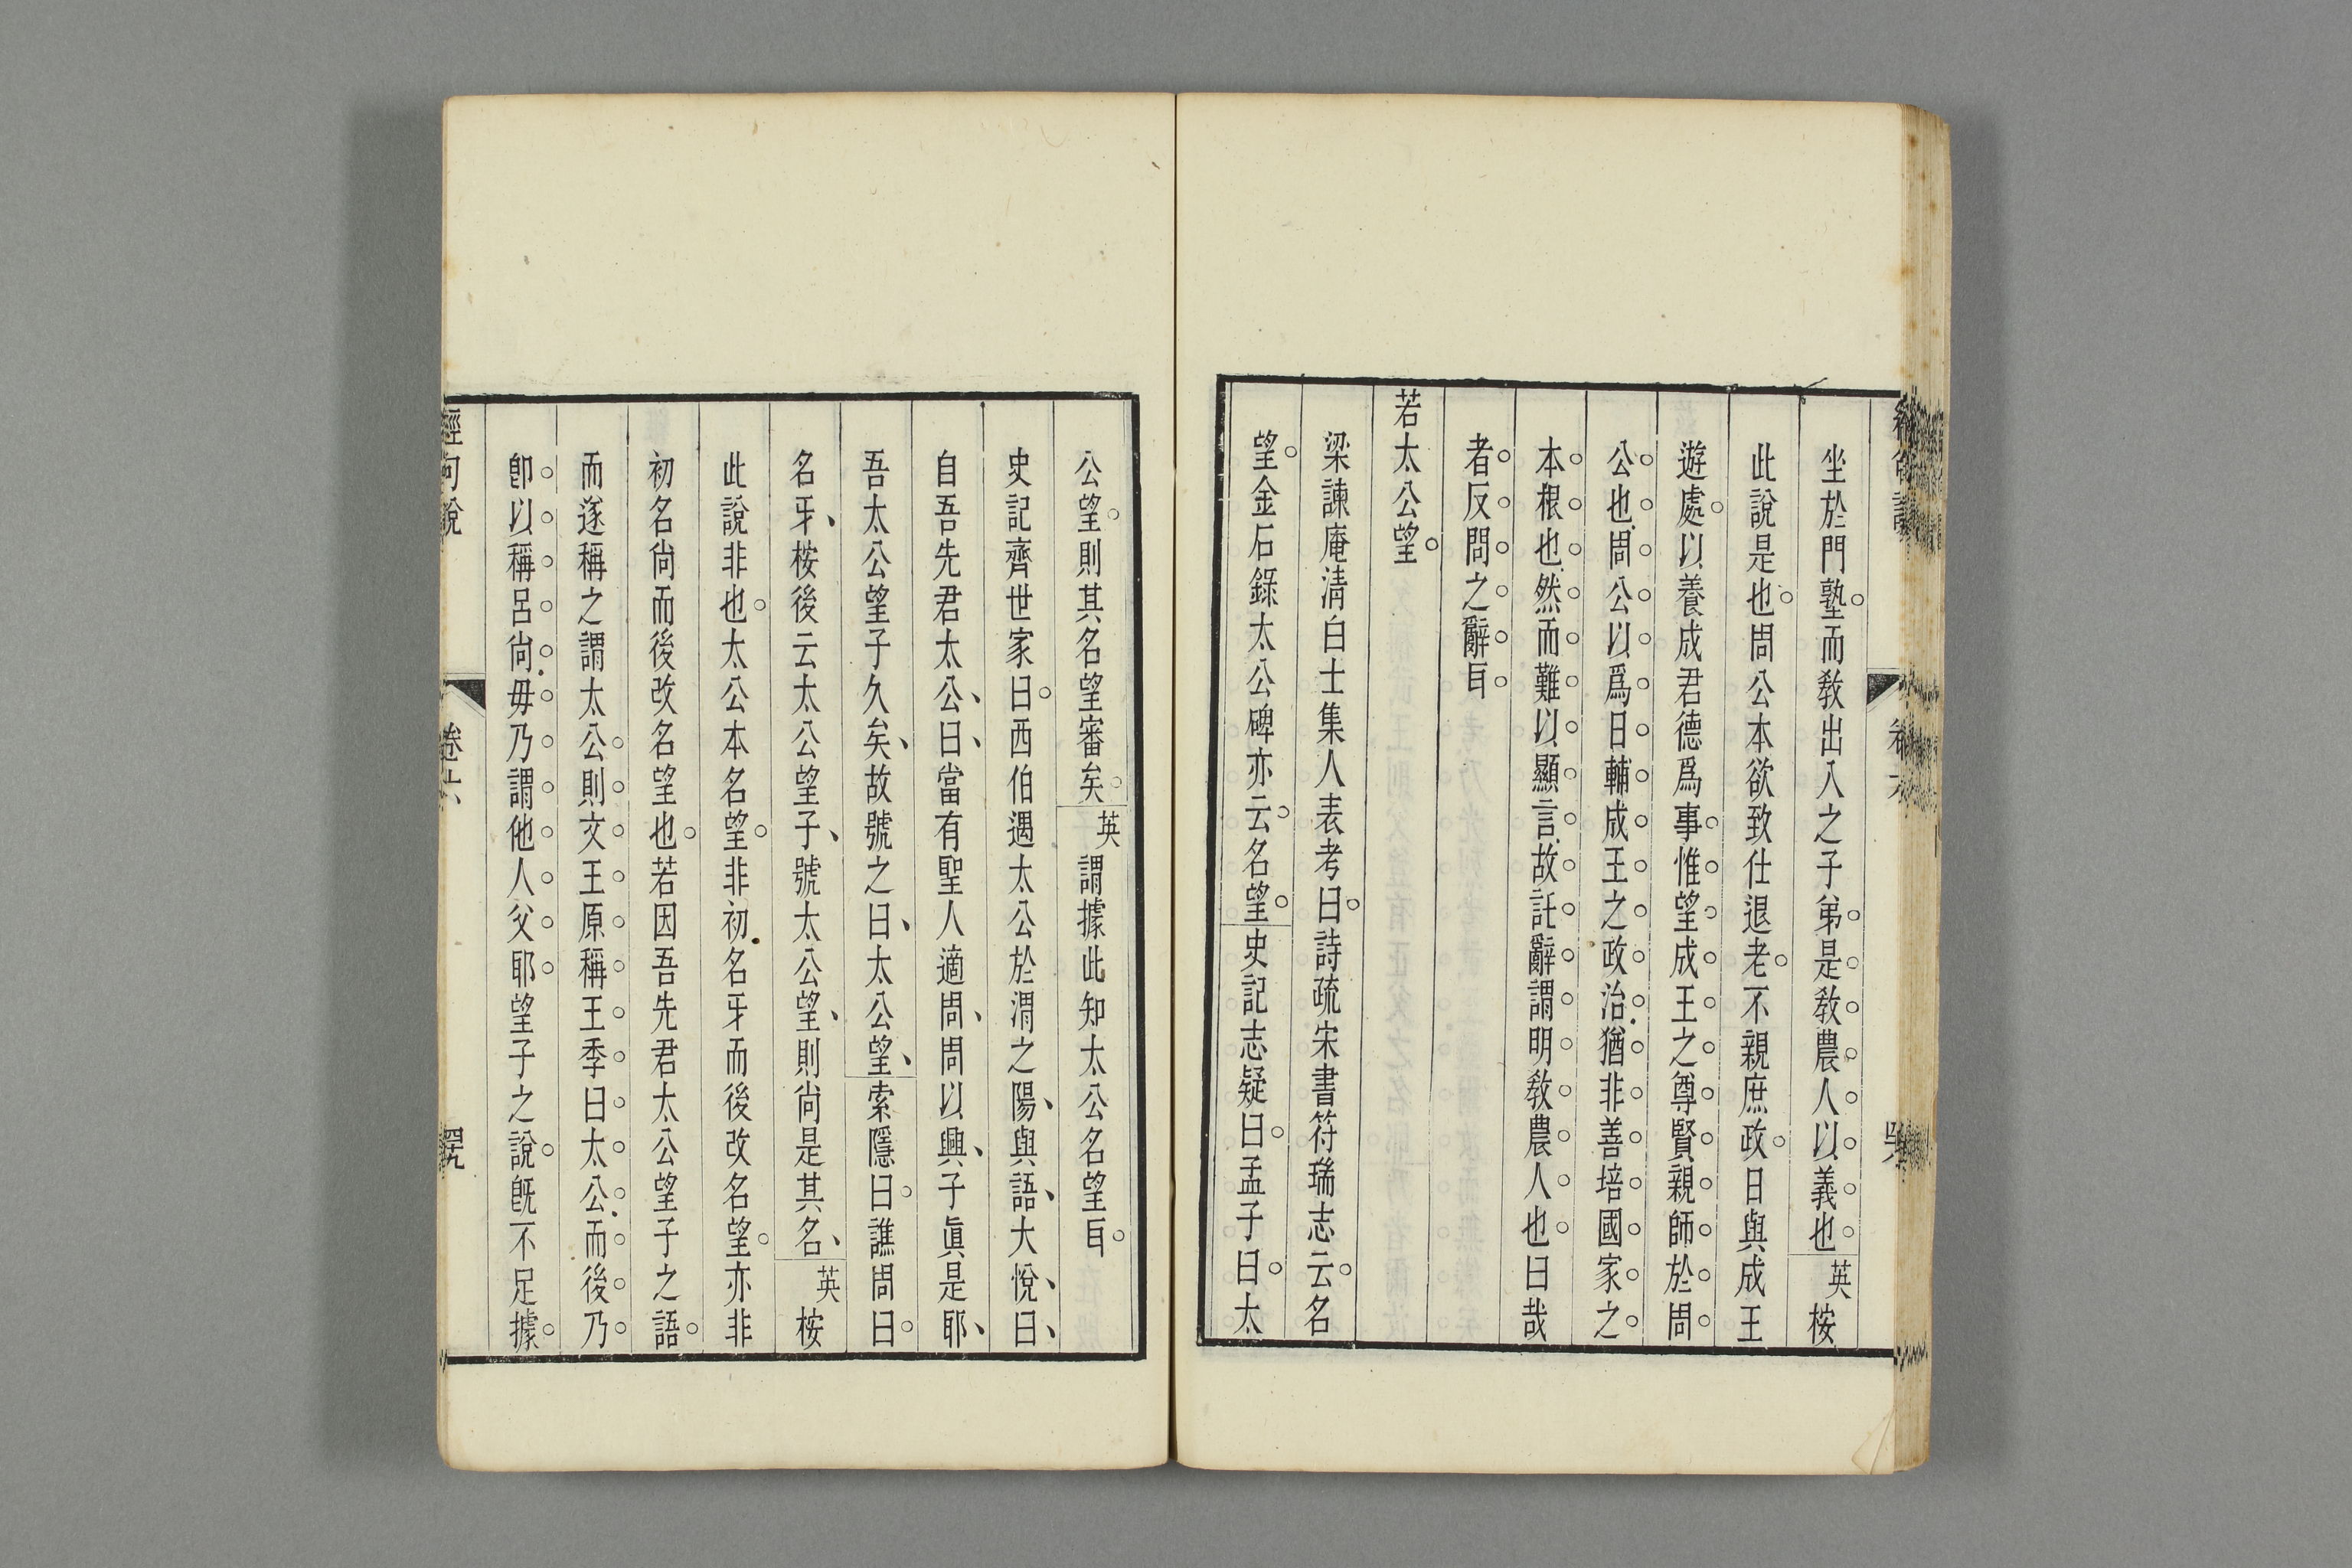 坐於門塾而敎出入之子弟是敎農人以義也英桉
此說是也周公本欲致仕退老不親庶政日與成王
遊處以養成君德爲事惟望成王之尊賢親師於周
公也周公以爲日輔成王之政治猶非善培國家之
本根也然而難以顯言故託辭謂明敎農人也曰哉
者反問之辭㠯
若太公望
梁諫庵淸白士集人表考曰詩疏宋書符瑞志云名
望金石錄太公碑亦云名望史記志疑曰孟子曰太
公望則其名望審矣英謂據此知太公名望㠯
史記齊世家曰西伯遇太公於渭之陽與語大悅曰
自吾先君太公曰當有聖人適周周以興子眞是耶
吾太公望子久矣故號之曰太公望索隱曰譙周曰
名牙桉後云太公望子號太公望則尙是其名英桉
此說非也太公本名望非初名牙而後改名望亦非
初名尙而後改名望也若因吾先君太公望子之語
而遂稱之謂太公則文王原稱王季曰太公而後乃
卽以稱呂尙毋乃謂他人父耶望子之說旣不足據
經句說
卷十六